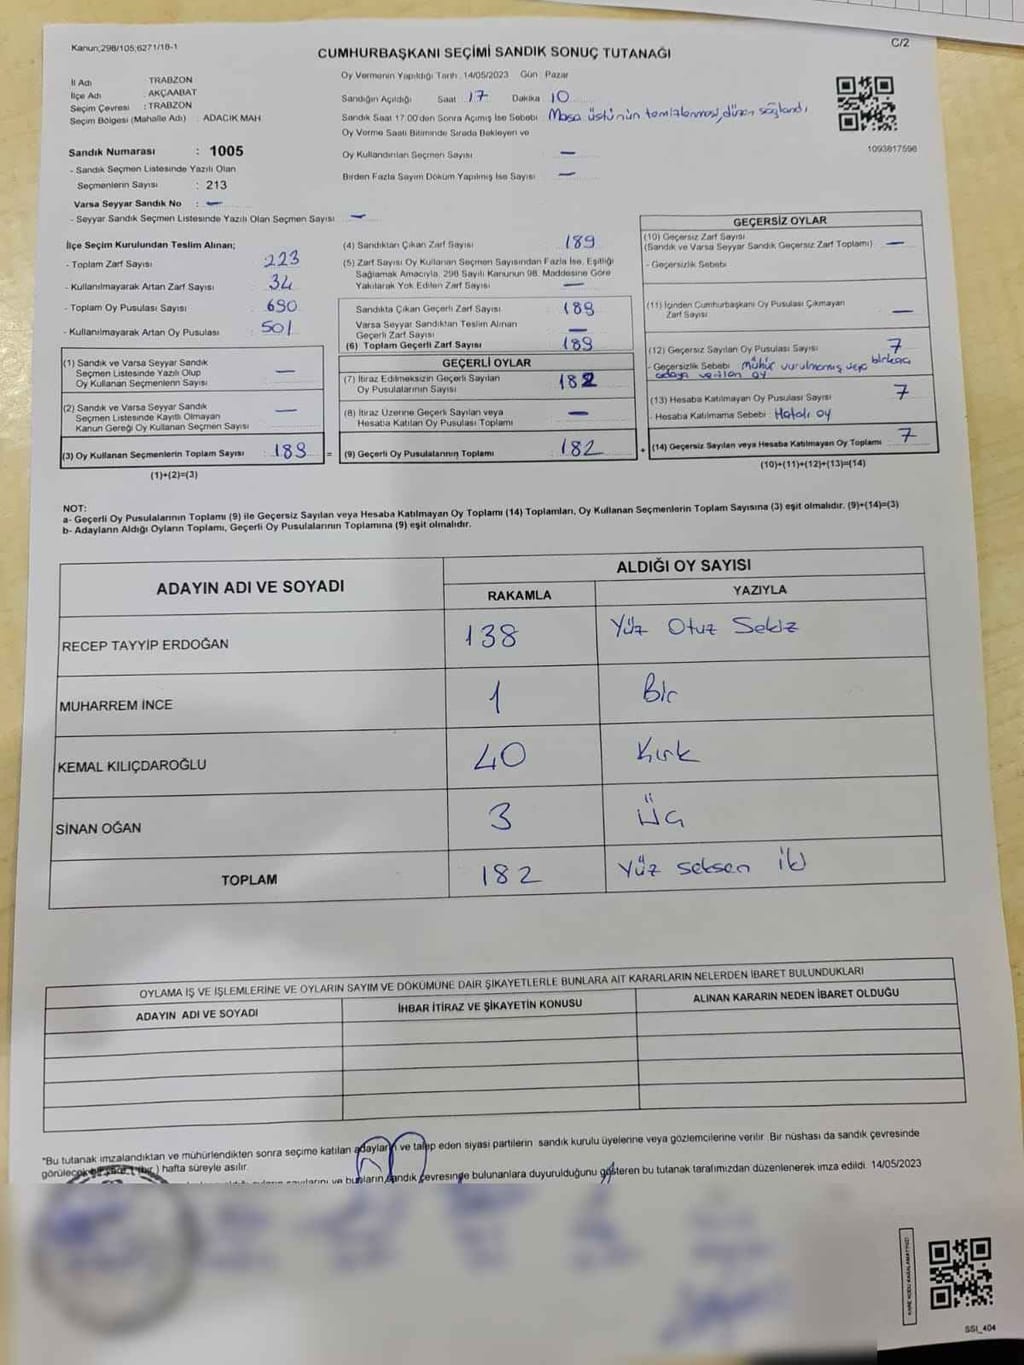 Kanun;298/105;6271/18-1
C/2
CUMHURBAŞKANI SEÇİMİ SANDIK SONUÇ TUTANAĞI
İl Adı : TRABZON
İlçe Adı : AKÇAABAT
Seçim Çevresi : TRABZON
Seçim Bölgesi (Mahalle Adı) : ADACIK MAH.
Sandık Numarası : 1005
- Sandık Seçmen Listesinde Yazılı Olan
Seçmenlerin Sayısı : 213
Varsa Seyyar Sandık No : -
- Seyyar Sandık Seçmen Listesinde Yazılı Olan Seçmen Sayısı : -
Oy Vermenin Yapıldığı Tarih : 14/05/2023 Gün : Pazar
Sandığın Açıldığı Saat 17 Dakika 10
Sandık Saat 17:00'den Sonra Açılmış İse Sebebi : Masa üstünün temizlenmesi, düzen sağlandı
Oy Verme Saati Bitiminde Sırada Bekleyen ve
Oy Kullandırılan Seçmen Sayısı -
Birden Fazla Sayım Döküm Yapılmış İse Sayısı -
1093817598
İlçe Seçim Kurulundan Teslim Alınan;
- Toplam Zarf Sayısı 223
- Kullanılmayarak Artan Zarf Sayısı 34
- Toplam Oy Pusulası Sayısı 690
- Kullanılmayarak Artan Oy Pusulası 501
(1) Sandık ve Varsa Seyyar Sandık
Seçmen Listesinde Yazılı Olup
Oy Kullanan Seçmenlerin Sayısı -
(2) Sandık ve Varsa Seyyar Sandık
Seçmen Listesinde Kayıtlı Olmayan
Kanun Gereği Oy Kullanan Seçmen Sayısı -
(3) Oy Kullanan Seçmenlerin Toplam Sayısı 189 =
(1)+(2)=(3)
(4) Sandıktan Çıkan Zarf Sayısı 189
(5) Zarf Sayısı Oy Kullanan Seçmen Sayısından Fazla İse, Eşitliği
Sağlamak Amacıyla, 298 Sayılı Kanunun 98. Maddesine Göre
Yakılarak Yok Edilen Zarf Sayısı -
Sandıkta Çıkan Geçerli Zarf Sayısı 189
Varsa Seyyar Sandıktan Teslim Alınan
Geçerli Zarf Sayısı -
(6) Toplam Geçerli Zarf Sayısı 189
GEÇERLİ OYLAR
(7) İtiraz Edilmeksizin Geçerli Sayılan
Oy Pusulalarının Sayısı 182
(8) İtiraz Üzerine Geçerli Sayılan veya
Hesaba Katılan Oy Pusulası Toplamı -
(9) Geçerli Oy Pusulalarının Toplamı 182 +
GEÇERSİZ OYLAR
(10) Geçersiz Zarf Sayısı
(Sandık ve Varsa Seyyar Sandık Geçersiz Zarf Toplamı) -
- Geçersizlik Sebebi :
(11) İçinden Cumhurbaşkanı Oy Pusulası Çıkmayan
Zarf Sayısı -
(12) Geçersiz Sayılan Oy Pusulası Sayısı 7
- Geçersizlik Sebebi : mühür vurulmamış veya birkaç
adaya verilen oy
(13) Hesaba Katılmayan Oy Pusulası Sayısı 7
- Hesaba Katılmama Sebebi : Hatalı oy
(14) Geçersiz Sayılan veya Hesaba Katılmayan Oy Toplamı 7
(10)+(11)+(12)+(13)=(14)
NOT:
a- Geçerli Oy Pusulalarının Toplamı (9) ile Geçersiz Sayılan veya Hesaba Katılmayan Oy Toplamı (14) Toplamları, Oy Kullanan Seçmenlerin Toplam Sayısına (3) eşit olmalıdır. (9)+(14)=(3)
b- Adayların Aldığı Oyların Toplamı, Geçerli Oy Pusulalarının Toplamına (9) eşit olmalıdır.
ADAYIN ADI VE SOYADI
ALDIĞI OY SAYISI
RAKAMLA YAZIYLA
RECEP TAYYİP ERDOĞAN 138 Yüz Otuz Sekiz
MUHARREM İNCE 1 Bir
KEMAL KILIÇDAROĞLU 40 Kırk
SİNAN OĞAN 3 Üç
TOPLAM 182 Yüz seksen iki
OYLAMA İŞ VE İŞLEMLERİNE VE OYLARIN SAYIM VE DÖKÜMÜNE DAİR ŞİKAYETLERLE BUNLARA AİT KARARLARIN NELERDEN İBARET BULUNDUKLARI
ADAYIN ADI VE SOYADI İHBAR İTİRAZ VE ŞİKAYETİN KONUSU ALINAN KARARIN NEDEN İBARET OLDUĞU
"Bu tutanak imzalandıktan ve mühürlendikten sonra seçime katılan adayların ve talep eden siyasi partilerin sandık kurulu üyelerine veya gözlemcilerine verilir. Bir nüshası da sandık çevresinde
görülecek bir (bir) hafta süreyle asılır.
ve bunların sandık çevresinde bulunanlara duyurulduğunu gösteren bu tutanak tarafımızdan düzenlenerek imza edildi. 14/05/2023
SSİ_404